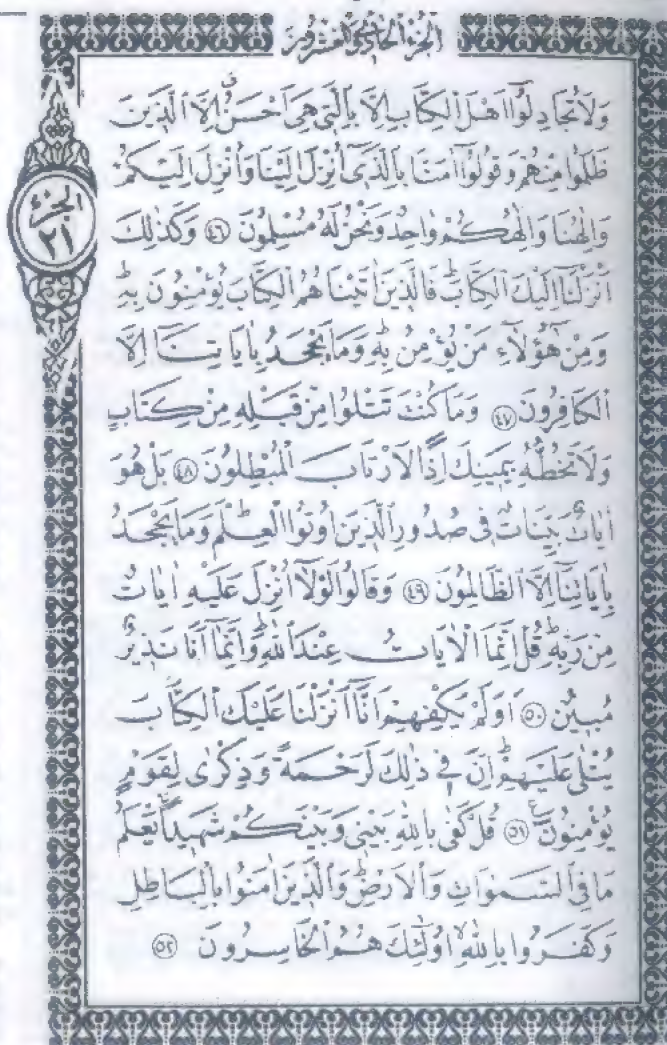 الجزء الحادي والعشرون
الجزء
٢١
وَلَا تُجَادِلُوٓا اَهْلَ الْكِتَابِ اِلَّا بِالَّتٖي هِيَ اَحْسَنُۗ اِلَّا الَّذٖينَ
ظَلَمُوا مِنْهُمْ وَقُولُوٓا اٰمَنَّا بِالَّذٖٓي اُنْزِلَ اِلَيْنَا وَاُنْزِلَ اِلَيْكُمْ
وَاِلٰهُنَا وَاِلٰهُكُمْ وَاحِدٌ وَنَحْنُ لَهُ مُسْلِمُونَ ٤٦ وَكَذٰلِكَ
اَنْزَلْنَٓا اِلَيْكَ الْكِتَابَۜ فَالَّذٖينَ اٰتَيْنَاهُمُ الْكِتَابَ يُؤْمِنُونَ بِهٖۚ
وَمِنْ هٰٓؤُلَٓاءِ مَنْ يُؤْمِنُ بِهٖۜ وَمَا يَجْحَدُ بِاٰيَاتِنَٓا اِلَّا
الْكَافِرُونَ ٤٧ وَمَا كُنْتَ تَتْلُوا مِنْ قَبْلِهٖ مِنْ كِتَابٍ
وَلَا تَخُطُّهُ بِيَمٖينِكَ اِذًا لَارْتَابَ الْمُبْطِلُونَ ٤٨ بَلْ هُوَ
اٰيَاتٌ بَيِّنَاتٌ فٖي صُدُورِ الَّذٖينَ اُوتُوا الْعِلْمَۜ وَمَا يَجْحَدُ
بِاٰيَاتِنَٓا اِلَّا الظَّالِمُونَ ٤٩ وَقَالُوا لَوْلَٓا اُنْزِلَ عَلَيْهِ اٰيَاتٌ
مِنْ رَبِّهٖۜ قُلْ اِنَّمَا الْاٰيَاتُ عِنْدَ اللّٰهِۜ وَاِنَّمَٓا اَنَا نَذٖيرٌ
مُبٖينٌ ٥٠ اَوَلَمْ يَكْفِهِمْ اَنَّٓا اَنْزَلْنَا عَلَيْكَ الْكِتَابَ
يُتْلٰى عَلَيْهِمْۜ اِنَّ فٖي ذٰلِكَ لَرَحْمَةً وَذِكْرٰى لِقَوْمٍ
يُؤْمِنُونَ ٥١ قُلْ كَفٰى بِاللّٰهِ بَيْنٖي وَبَيْنَكُمْ شَهٖيدًاۚ يَعْلَمُ
مَا فِي السَّمٰوَاتِ وَالْاَرْضِۜ وَالَّذٖينَ اٰمَنُوا بِالْبَاطِلِ
وَكَفَرُوا بِاللّٰهِۙ اُولٰٓئِكَ هُمُ الْخَاسِرُونَ ٥٢